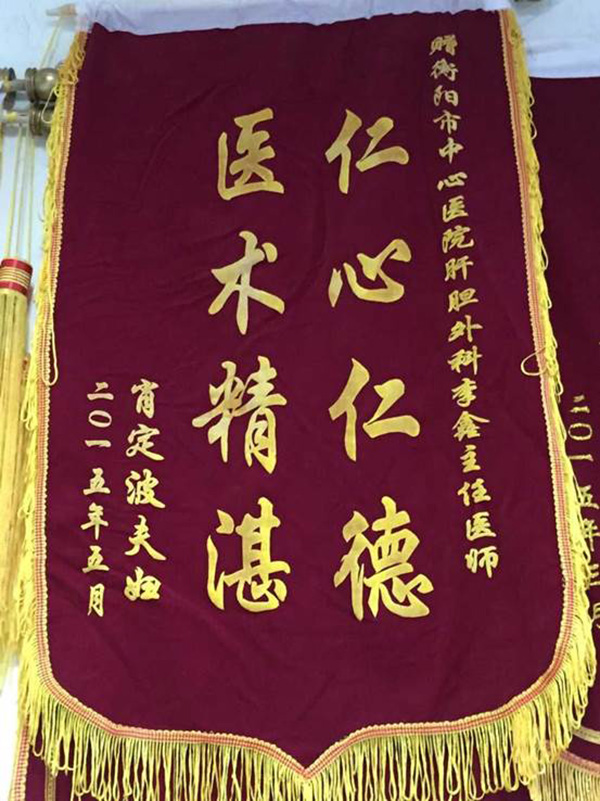 赠衡阳市中心医院肝胆外科李鑫主任医师
仁心仁德
医术精湛
肖定波夫妇
二〇一五年五月
二〇一五年